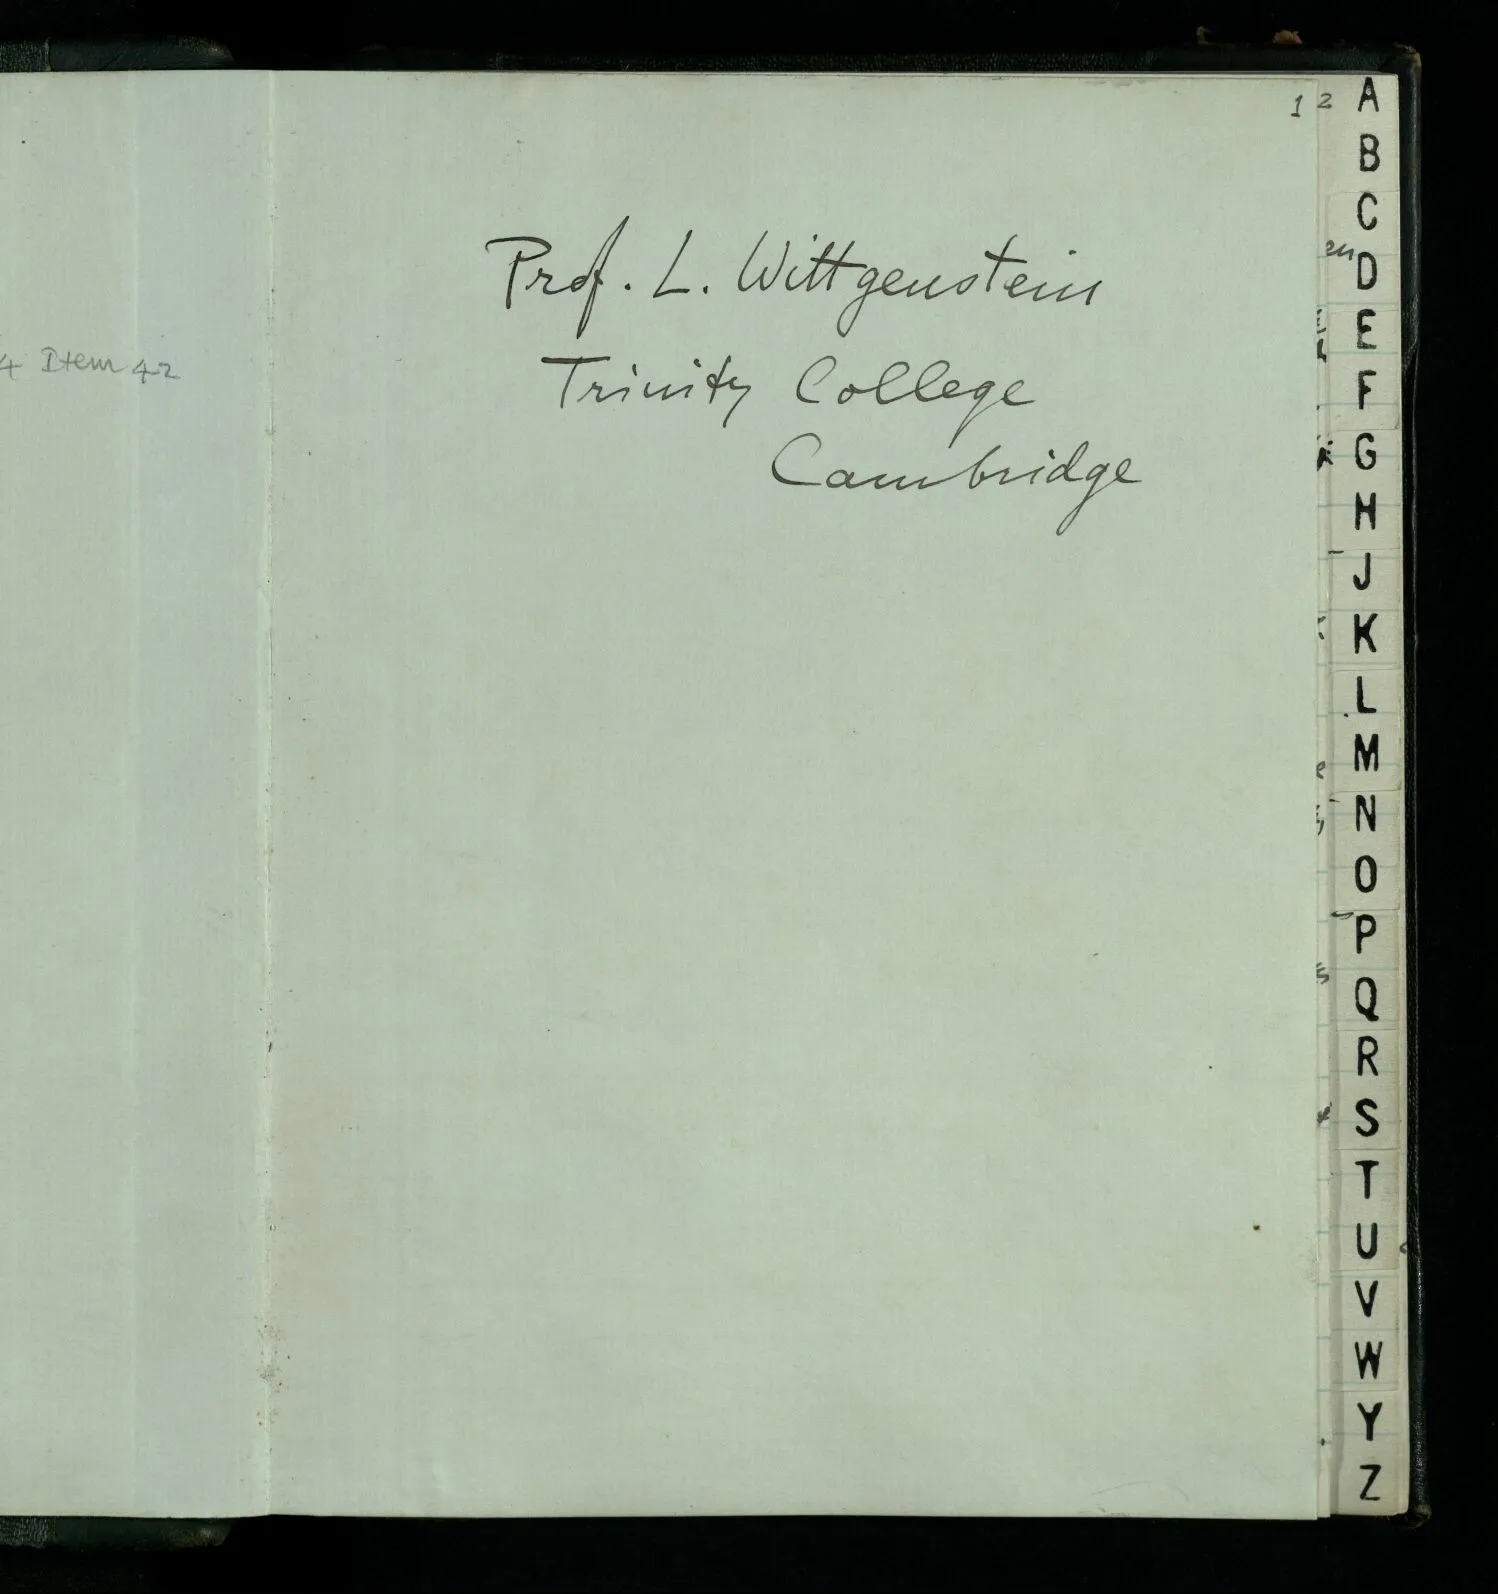 4 Item 42
1 2
Prof. L. Wittgenstein
Trinity College
Cambridge
A
B
C
D
E
F
G
H
J
K
L
M
N
O
P
Q
R
S
T
U
V
W
Y
Z